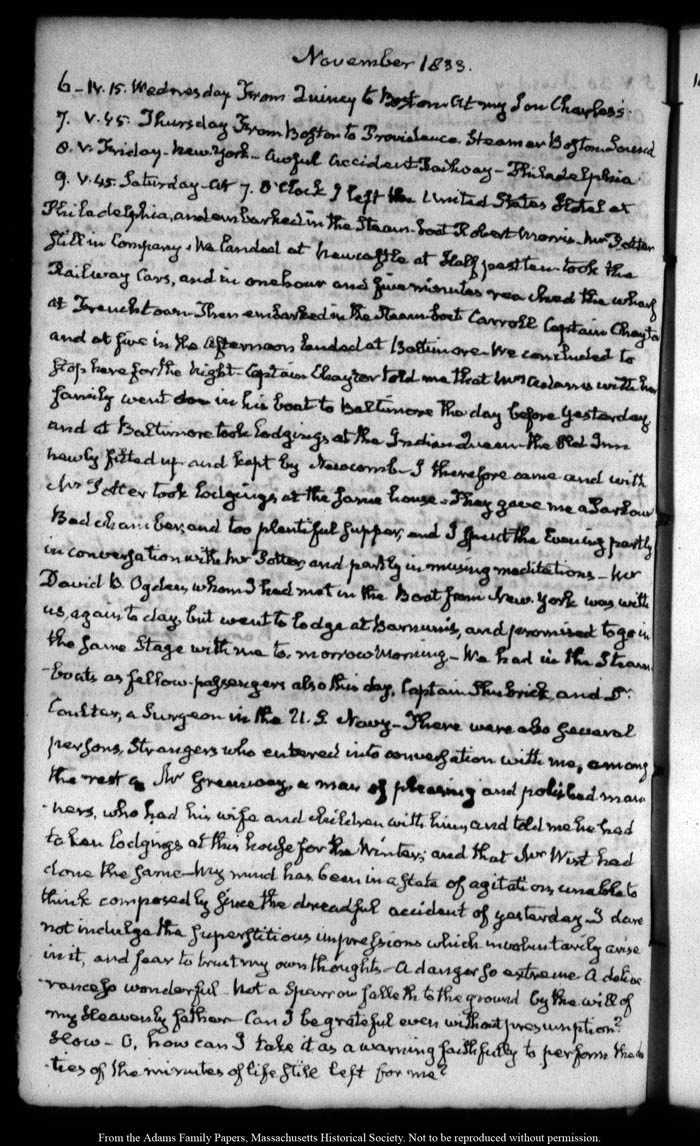 November 1833.
6 – IV. 15. Wednesday From Quincy to Boston at my Son Charles's.
7. V. 45. Thursday From Boston to Providence. Steamer Boston Sound
8. V. Friday – New York – Awful accident Railway – Philadelphia.
9. V. 45. Saturday – At 7. O'Clock I left the United States Hotel at
Philadelphia, and embarked in the Steam-boat Robert Morris – Mr Potter
still in Company. We landed at Newcastle at half past ten – took the
Railway Cars, and in one hour and five minutes reached the wharf
at Frenchtown – Then embarked in the Steam boat Carroll Captain Chaytor
and at five in the Afternoon landed at Baltimore – We concluded to
stop here for the Night – Captain Chaytor told me that Mrs Adams with her
family went in his boat to Baltimore the day before yesterday
and at Baltimore took lodgings at the Indian Queen – the Old Inn
newly fitted up and kept by Newcomb – I therefore came and with
Mr Potter took lodgings at the same house – They gave me a Parlour
Bed chamber, and too plentiful supper, and I spent the Evening partly
in conversation with Mr Potter, and partly in musing meditations – Mr
David B. Ogden, whom I had met in the Boat from New York was with
us, again to day, but went to lodge at Barnum's, and promised to go in
the same Stage with me to-morrow Morning – We had in the Steam-
-boats as fellow-passengers also this day, Captain Shubrick, and Dr
Coulter, a Surgeon in the U. S. Navy – There were also several
persons, Strangers who entered into conversation with me, among
the rest a Mr Greenway, a man of pleasing and polished man-
-ners, who had his wife and children with him, and told me he had
taken lodgings at this house for the Winter; and that Mr Wirt had
done the same – My mind has been in a state of agitation, unable to
think composedly since the dreadful accident of yesterday – I dare
not indulge the superstitious impressions which involuntarily arise
in it, and fear to trust my own thoughts – A danger so extreme A delive-
-rance so wonderful – Not a sparrow falleth to the ground by the will of
my Heavenly father – Can I be grateful even without presumption?
How – O, how can I take it as a warning faithfully to perform the du-
-ties of the minutes of life still left for me?
From the Adams Family Papers, Massachusetts Historical Society. Not to be reproduced without permission.